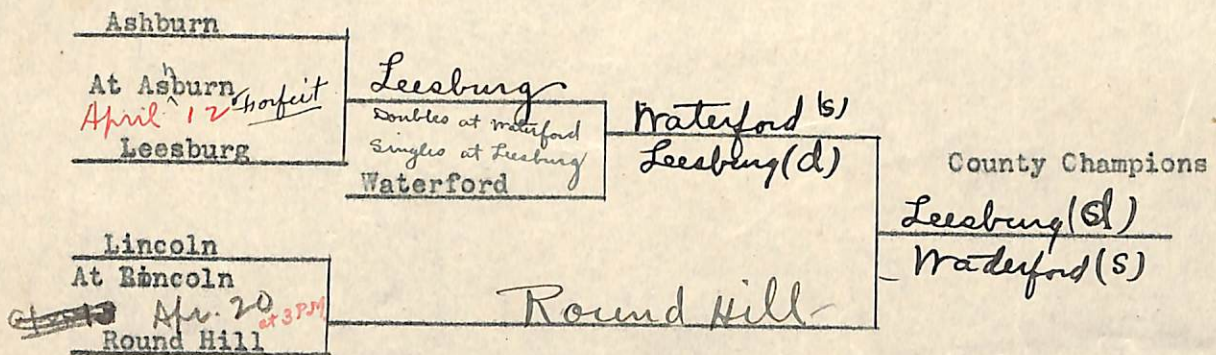 Ashburn
At Ashburn
April 12 Forfeit
Leesburg
Leesburg
Doubles at Waterford
Singles at Leesburg
Waterford
Waterford (s)
Leesburg (d)
County Champions
Leesburg (d)
Waderford (S)
Lincoln
At Lincoln
Apr. 20 at 3 PM
Round Hill
Round Hill